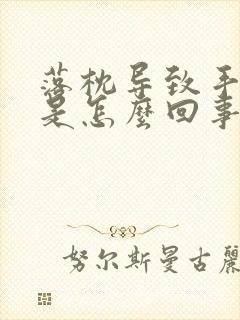 落枕导致手
是怎麼回事
努尔斯曼古麗